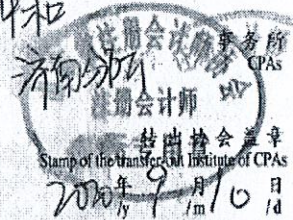 中和
事务所
CPAs
济南分所
注册会计师
转出协会盖章
Stamp of the transfer-out Institute of CPAs
2020年 9 月 10 日
/y /m /d